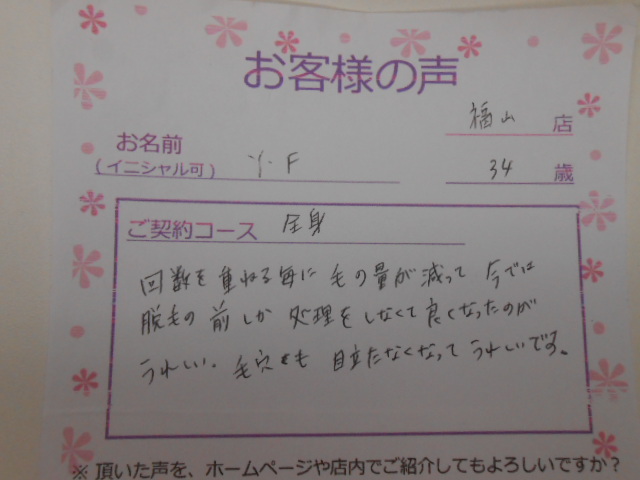 お客様の声
福山 店
お名前
(イニシャル可) Y.F 34 歳
ご契約コース 全身
回数を重ねる毎に毛の量が減って 今では
脱毛の前しか処理をしなくて良くなったのが
うれしい。毛穴も目立たなくなってうれしいです。
※頂いた声を、ホームページや店内でご紹介してもよろしいですか?